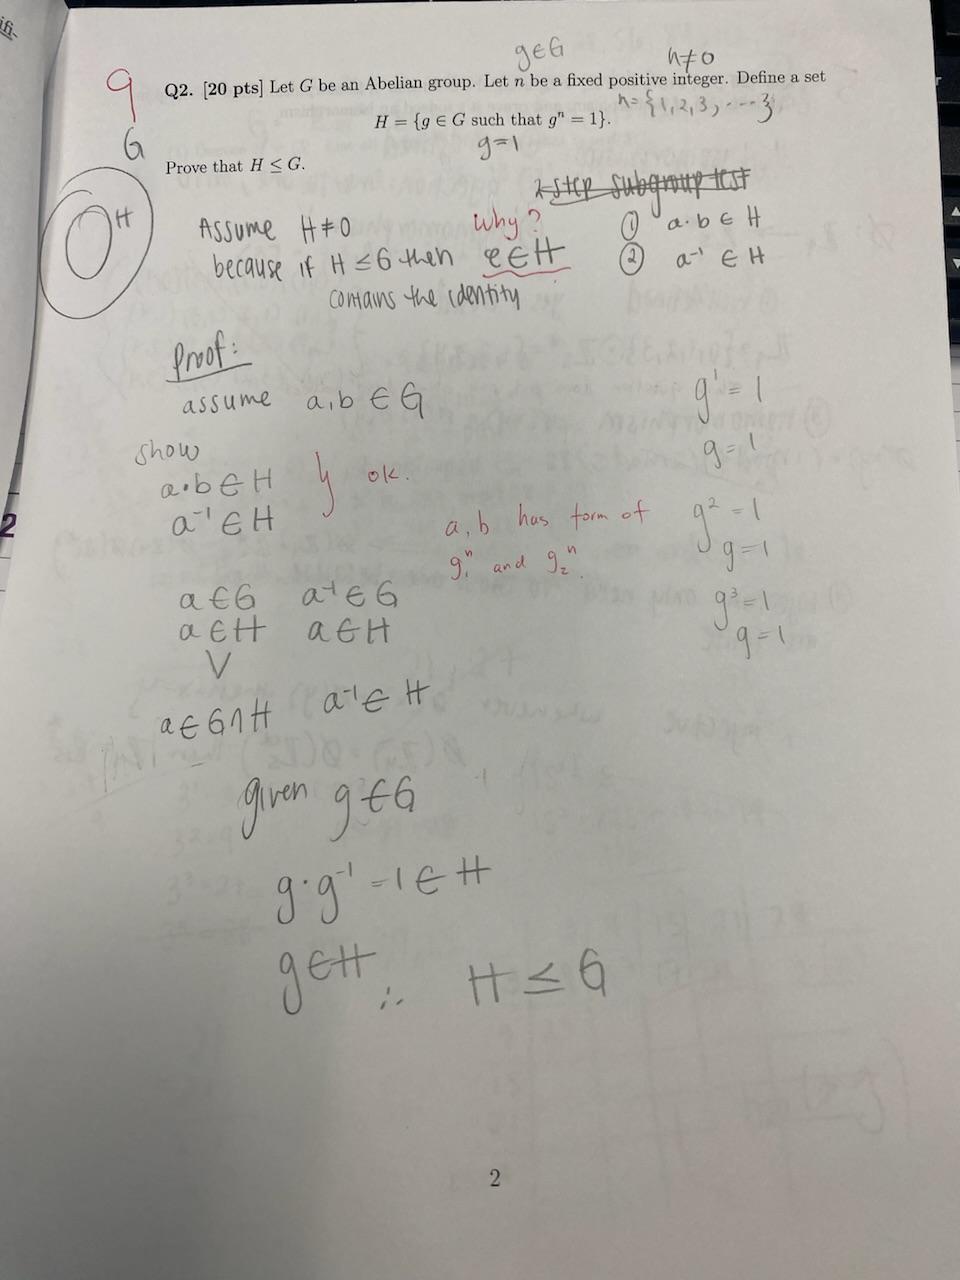 ifi-
g∈G n≠0
9
Q2. [20 pts] Let G be an Abelian group. Let n be a fixed positive integer. Define a set
H = {g ∈ G such that gⁿ = 1}.
n={1,2,3,----}
g=1
G
Prove that H ≤ G.
2-step subgroup test
H
Assume H≠0 Why? ① a·b ∈ H
because if H ≤ G then e∈H ② a⁻¹ ∈ H
contains the identity
Proof:
assume a,b ∈ G
g¹ = 1
g=1
show
a·b∈H } ok.
a⁻¹∈H
a, b has form of
g₁ⁿ and g₂ⁿ.
g² = 1
g=1
a∈G a⁻¹∈G
a∈H a∈H
g³=1
g=1
V
a∈G∩H a⁻¹∈H
given g∈G
g·g⁻¹=1∈H
g∈H ∴ H ≤ G
2
2